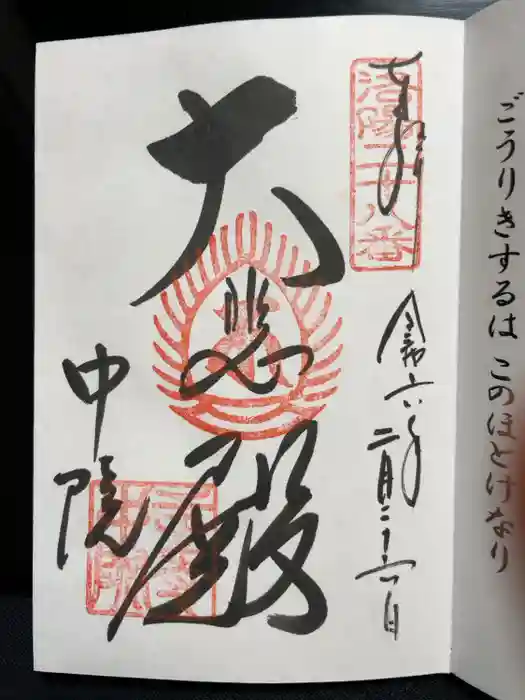 ごうりきするは このほとけなり
奉拝
洛陽二十八番
令和六年
二月二十六日
大悲殿
中院